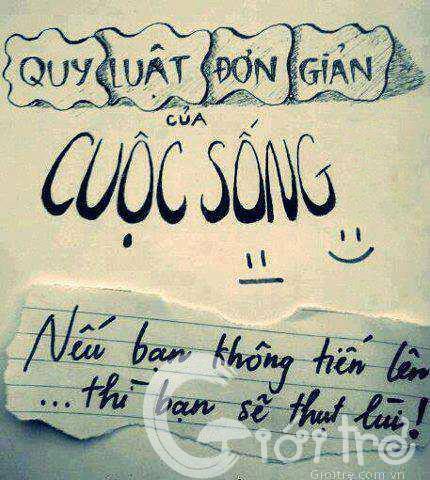 QUY LUẬT ĐƠN GIẢN
CỦA
CUỘC SỐNG
Nếu bạn không tiến lên
... thì bạn sẽ thụt lùi!
Giới trẻ
Gioitre.com.vn